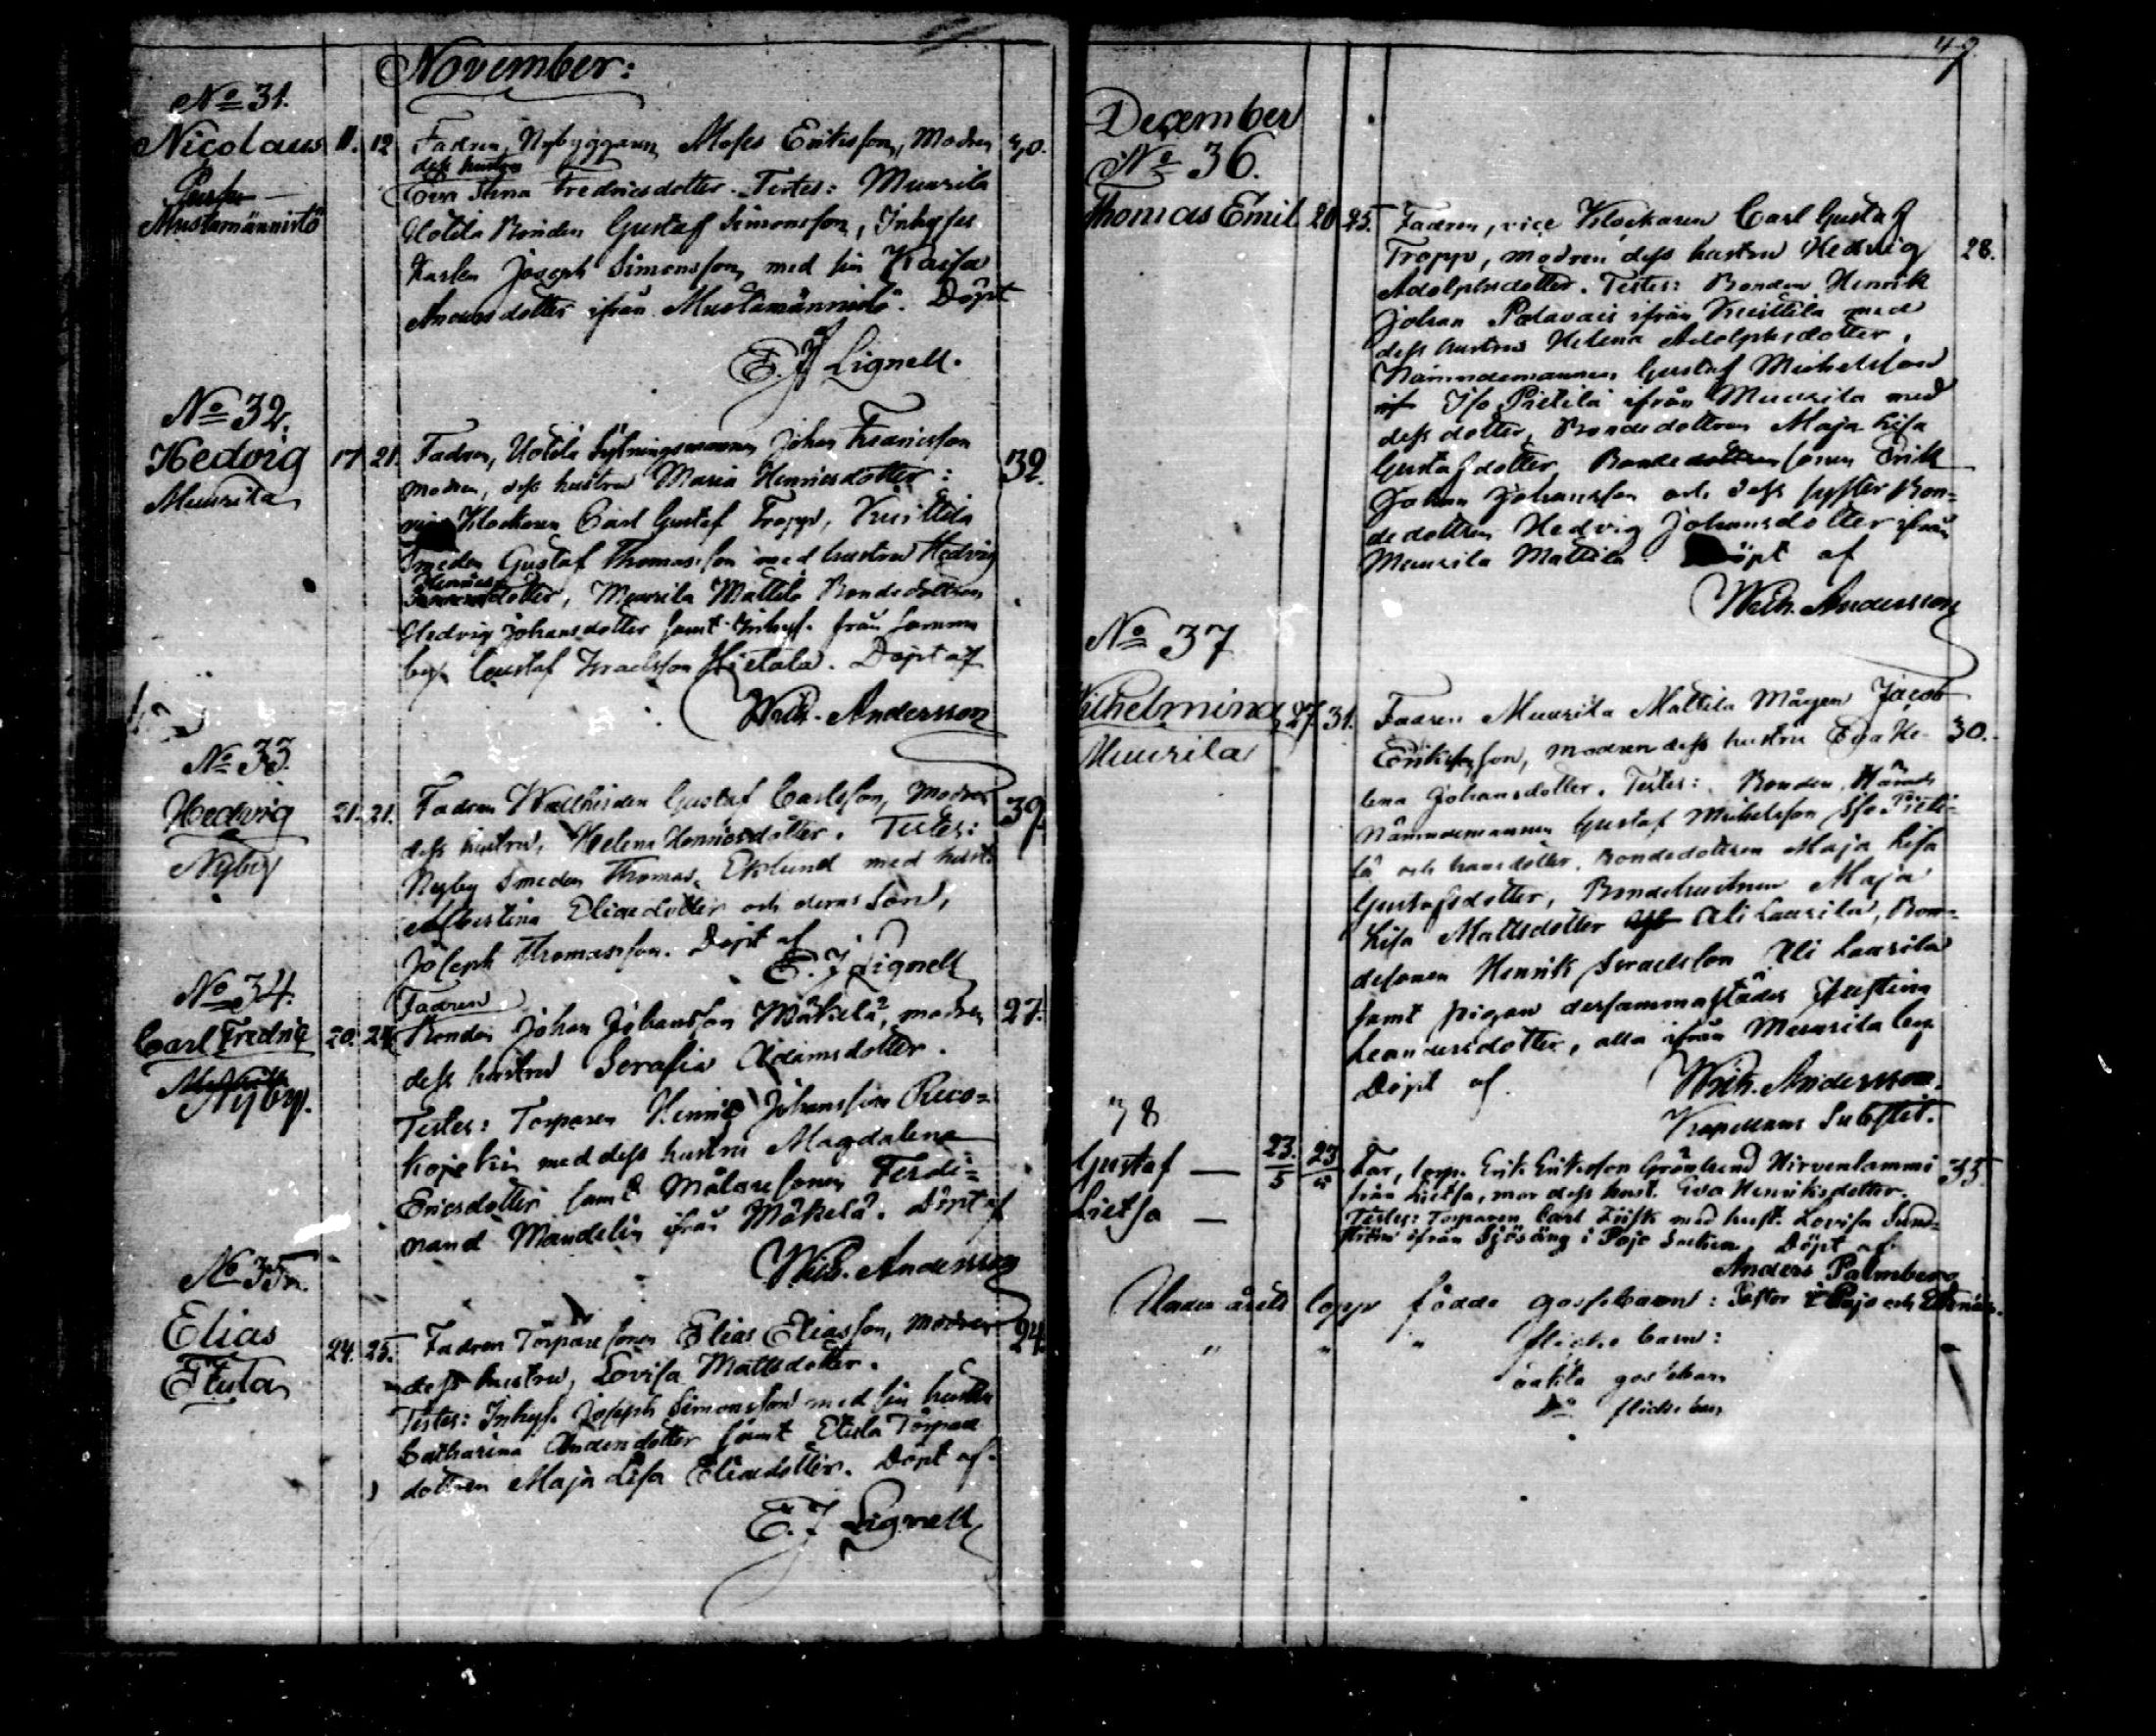 November:
No 31.
Nicolaus 11. 12 Fadren, Nybyggaren Moses Eriksson, Modren 40.
dess hustru
Mustamännistö
Eva Stina Fredricsdotter. Testes: Muurila
Uotila Bonden Gustaf Simonsson, Inhyses
Karlen Joseph Simonsson, med sin Kaisa
Andersdotter ifrån Mustamännistö. Döpt
E. J Lignell.
No 32.
Hedvig 17 21. Fadren, Uotila Sytningsmannen Johan Fransson 32.
Muurila
modren, dess hustru Maria Henricsdotter:
Klockaren Carl Gustaf Tropp, Knuttila
Smeden Gustaf Thomasson med hustru Hedvig
Henricsdotter, Muurila Mattila Bondedottren
Hedvig Johansdotter samt Inhys. från samma
by Gustaf Israelsson Hietala. Döpt af
Wilh. Andersson
No 33.
Hedvig 21. 21. Fadren Gustaf Carlsson, Modren 39.
Nyby
dess hustru, Helena Henricsdotter. Testes:
Nyby Smeden Thomas Eklund med hust.
Albertina Eliaedotter och deras Son,
Joseph Thomasson. Döpt af
E. J Lignell
No 34.
Fadren
Carl Fredric 20. 24 Bonden Johan Johansson Mäkelä, modren 27.
Nyby.
dess hustru Serafia Adamsdotter.
Testes: Torparen Henric Johansson Ruco=
kojoki med dess hustru Magdalena
Ericsdotter samt Målaresonen Ferdi=
nand Mandelin ifrån Mäkelä. Döpt af
Wilh. Andersson
No 35.
Elias 24. 25. Fadren Torpare sonen Elias Eliasson, modren 24.
Etula
dess hustru, Lovisa Mattsdotter.
Testes: Inhys. Joseph Simonsson med sin hustru
Catharina Andersdotter samt Etula Torpare
dottren Maja Lisa Eliaedotter. Döpt af
E. J Lignell
49.
December
No 36.
Thomas Emil 20 25. Fadren, vice Klockaren Carl Gustaf
Tropp, modren dess hustru Hedvig 28.
Adolphsdotter. Testes: Bonden Henrik
Johan Palavais ifrån Knuttila med
dess hustru Helena Adolphsdotter,
Nämndemannen Gustaf Michelsson
Iso Pietilä ifrån Muurila med
dess dotter, Bondedottren Maja Lisa
Gustafsdotter, Bondesonen Erik
Johan Johansson och dess syster Bon=
dedottren Hedvig Johansdotter ifrån
Muurila Mattila. Döpt af
Wilh. Andersson
No 37
Wilhelmina 27 31. Fadren Muurila Mattila Mågen Jacob
Muurila
Eriksson, modren dess hustru Eva He- 30.
lena Johansdotter. Testes: Bonden
Nämndemannen Gustaf Michelsson Iso Pieti-
lä och hans dotter, Bondedottren Maja Lisa
Gustafsdotter, Bondehustrun Maja
Lisa Mattsdotter Ali Laurila, Bon=
desonen Henrik Israelsson Ali Laurila
samt pigan dersammastädes Justina
Leandersdotter, alla ifrån Muurila by.
Döpt af
Wilh. Andersson.
Kapellans Substit.
38
Gustaf — 23./5 23/5 Far, torp. Erik Eriksson Grönlund Hirvenlammi 35.
Lietsa —
från Lietsa, mor dess hust. Eva Henriksdotter.
Testes: Torparen Carl med hust. Lovisa Sund=
ström ifrån Sjösäng i Pojo Socken. Döpt af
Anders Palmberg
Under årets lopp födde gossebarn: Pastor i Pojo och Ekenäs.
" " " flicke barn:
oäkta gossebarn
Do flickebarn